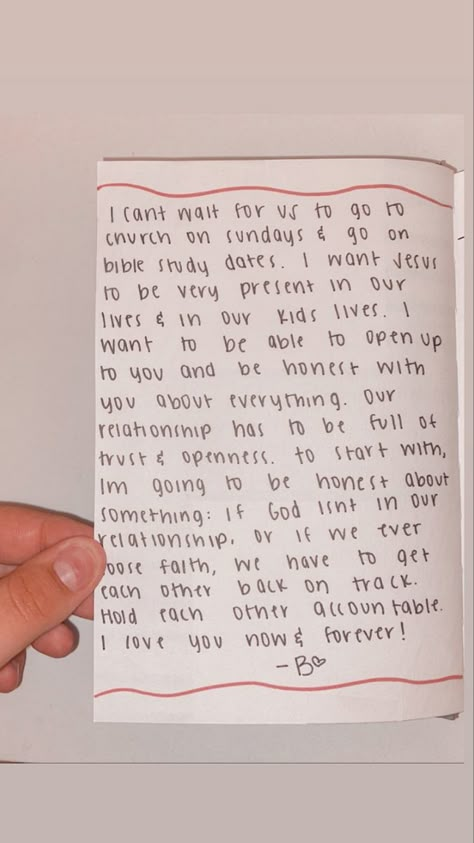 I cant wait for us to go to
church on sundays & go on
bible study dates. I want Jesus
to be very present in our
lives & in our kids lives. I
want to be able to open up
to you and be honest with
you about everything. Our
relationship has to be full of
trust & openness. to start with,
Im going to be honest about
something: if God isnt in our
relationship, or if we ever
loose faith, we have to get
each other back on track.
Hold each other accountable.
I love you now & forever!
- B♡